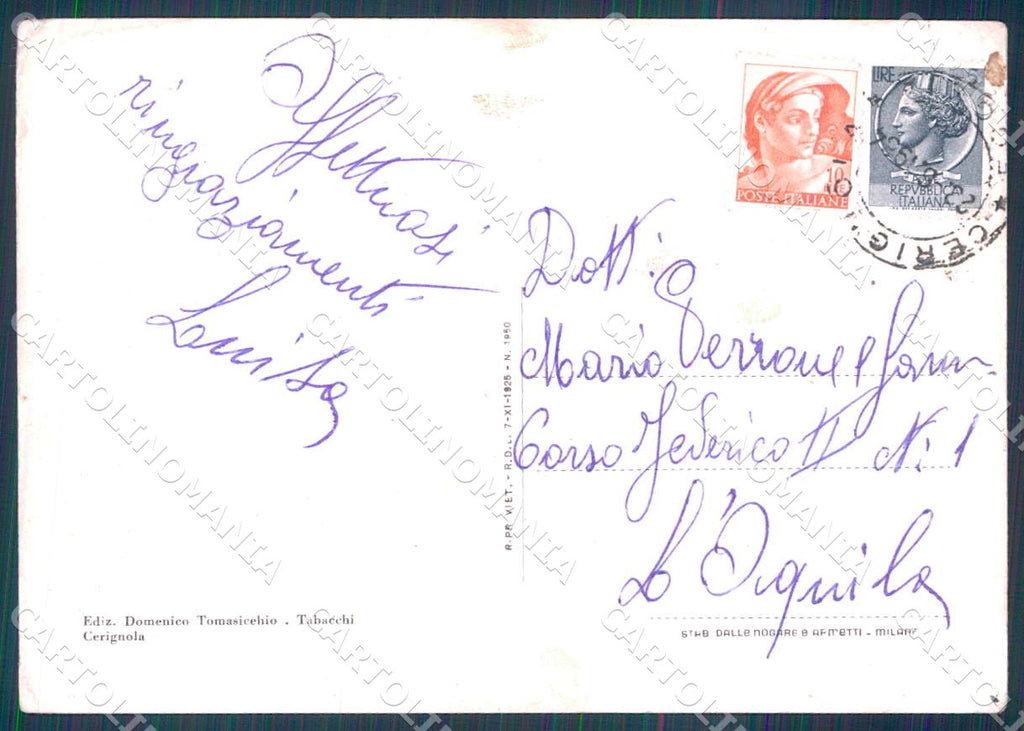 Affettuosi
ringraziamenti
Luisa
LIRE 5
10
LIRE
POSTE ITALIANE
REPVBBLICA
ITALIANA
CERIG
Dott:
Mario Perrone e Fam
Corso Federico II N: 1
L'Aquila
RIPR. VIET. - R.D.L. 7-XI-1925 - N. 1950
Ediz. Domenico Tomasicchio . Tabacchi
Cerignola
STAB DALLE NOGARE & ARMETTI - MILANO
CARTOLINOMANIA